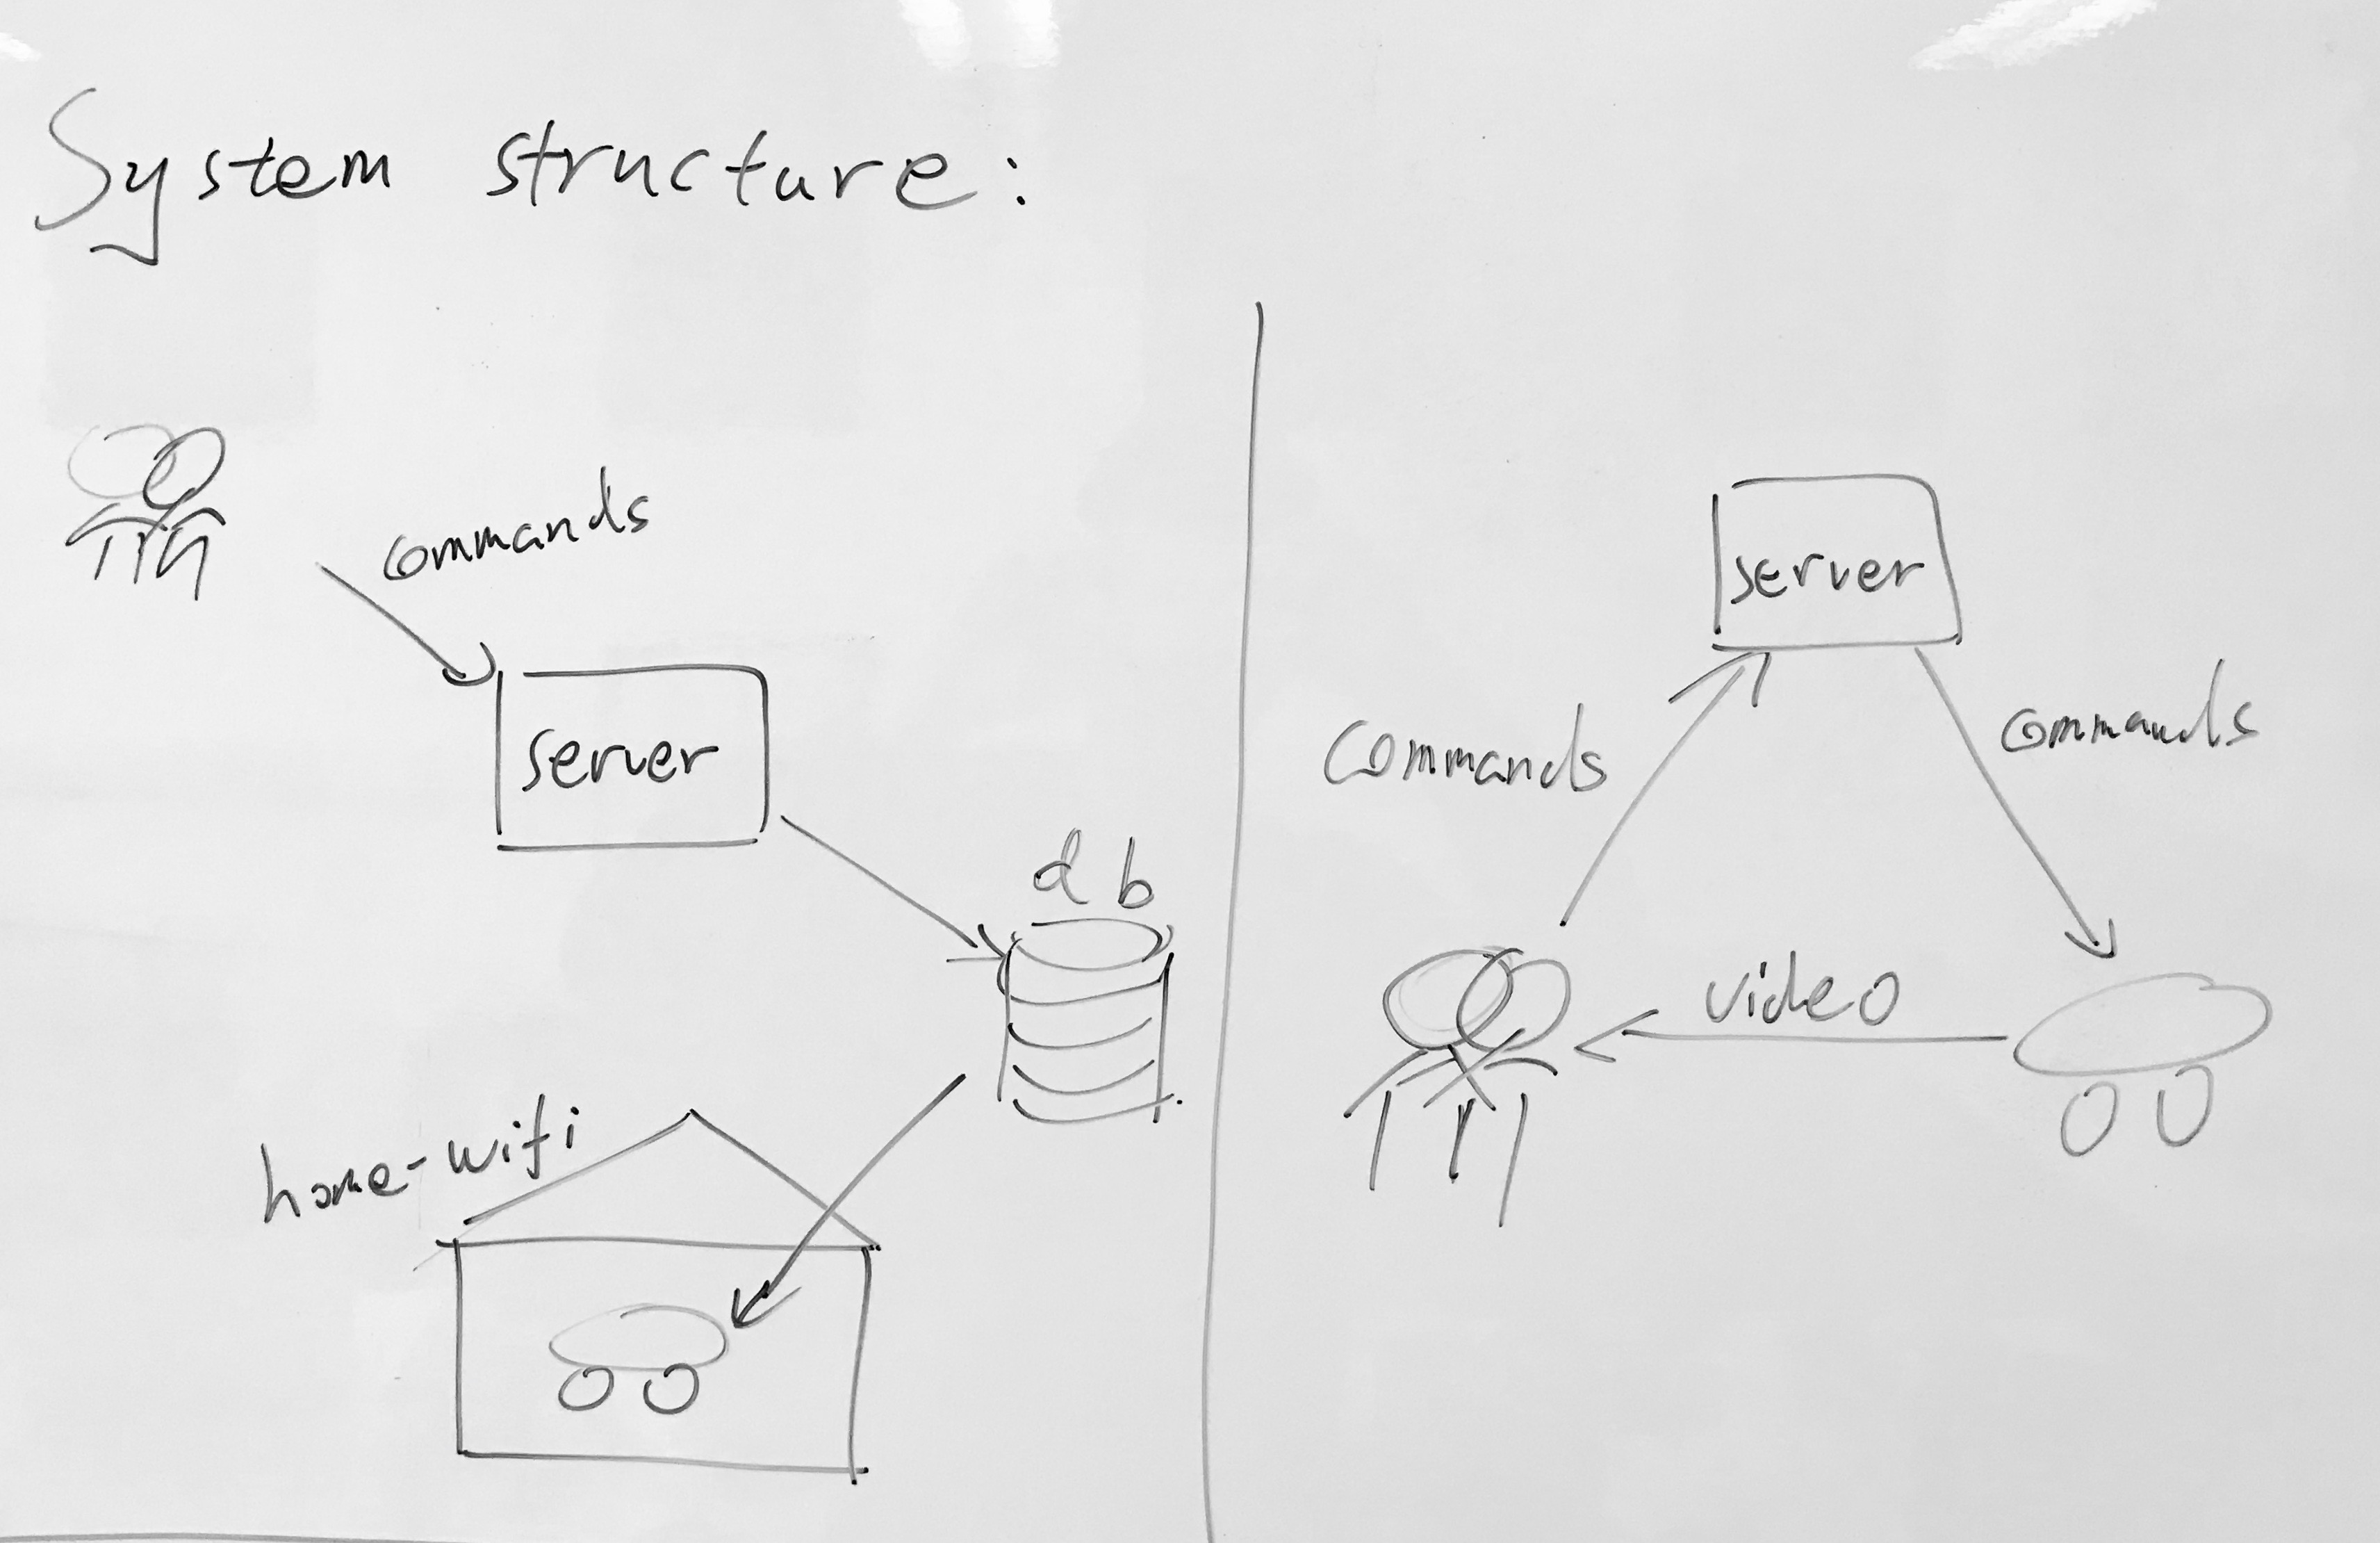 System structure:
commands
server
db
home-wifi
server
commands
commands
video